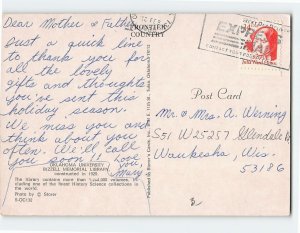 Dear Mother & Father
Just a quick line
to thank you for
all the lovely
gifts and thoughts
you've sent this
holiday season.
We miss you and
think about you
often. We'll call
you soon!! Love you
Mary
OKLAHOMA UNIVERSITY
BIZZELL MEMORIAL LIBRARY
constructed in 1929
The library contains more than volumes, including one of the finest History Science collections in the world.
Photo by C Storer
S-OC-132
FRONTIER COUNTRY
EXPRESS MAIL
CONTACT YOUR POSTMASTER
Post Card
Mr. & Mrs. A. Werning
S51 W25257 Glendale
Waukesha, Wis.
53186